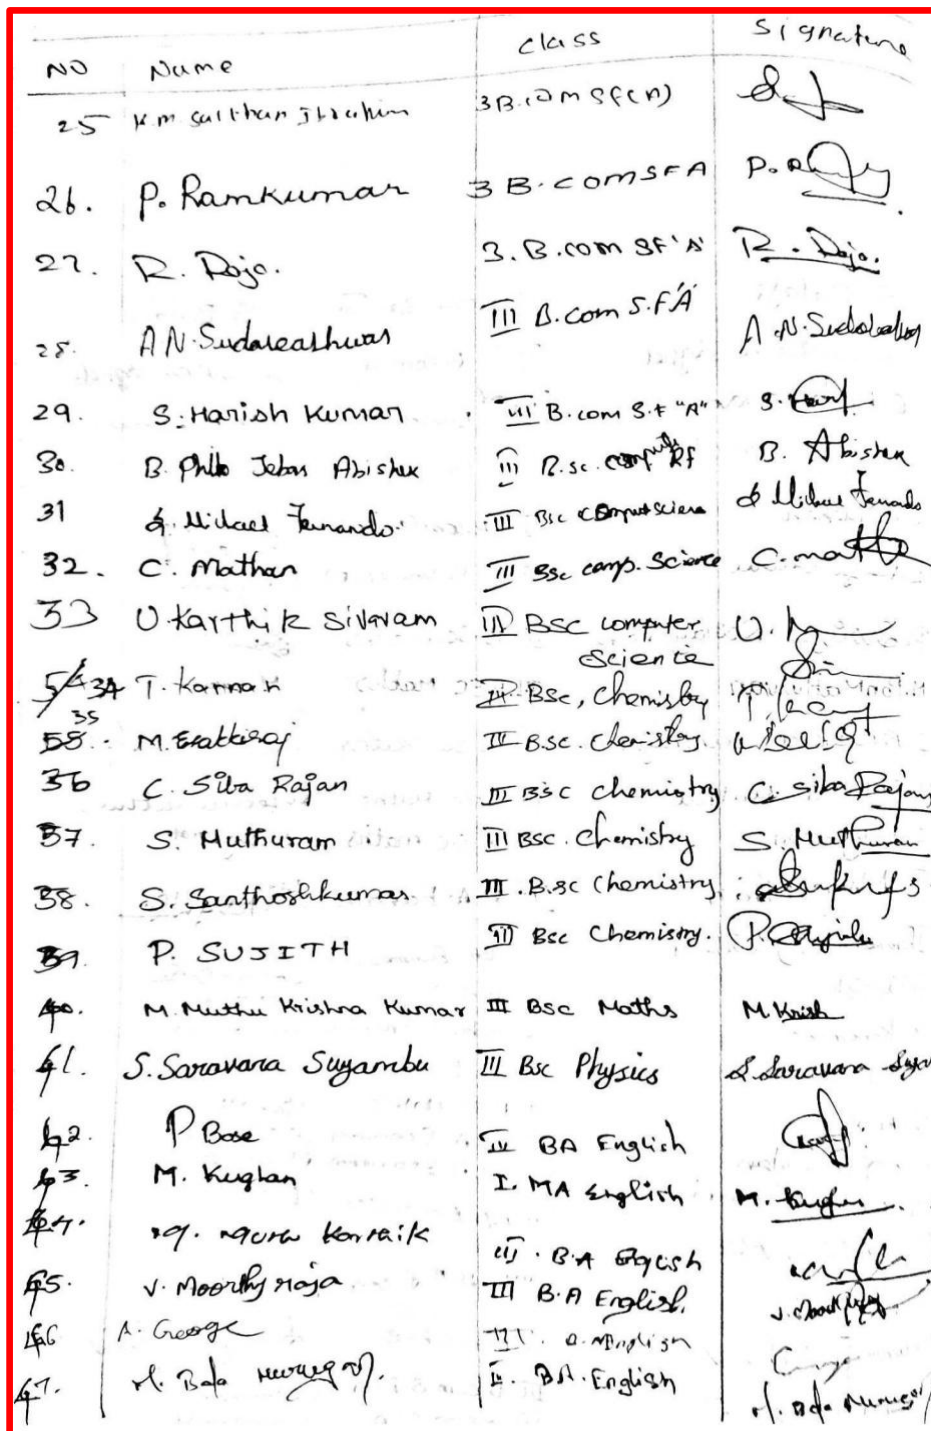 NO Name Class Signature
25 K.M Saithan Ibrahim 3B.com SF(A)
26. P. Ramkumar 3 B.COM SFA P.
27. R. Raja. 3.B.com SF'A' R. Raja.
28. A N. Sudareashwar III B.com S.F'A' A.N.
29. S. Harish Kumar III B.com S.F "A" S.
30. B. Philo Jebas Abishek III B.sc. B. Abishek
31 Michael Fernando. III Bsc Computer Science Michael Fernando
32. C. Mathan III BSc comp. Science C.
33 U. Karthik Sivaram III BSC computer U.
Science
34 T. Kannan III BSc, Chemistry T.
35
M. Esakkiraj III B.SC. Chemistry
36 C. Siba Rajan III BSC Chemistry C. Siba Rajan
37. S. Muthuram III BSC. Chemistry S. Muthuram
38. S. Santhoshkumar III. B.sc Chemistry
39. P. SUJITH III Bsc Chemistry. P.
40. M. Muthu Krishna Kumar III BSC Maths M. Krish
41. S. Saravana Suyambu III Bsc Physics S. Saravana
42. P Bose III BA English
43. M. Kughan I. MA English M.
44. III. B.A English
45. V. Moorthy raja III B.A English. V.
46 A. George III. English
47. M. Bala Murugan. II. BA. English M. Bala Murugan